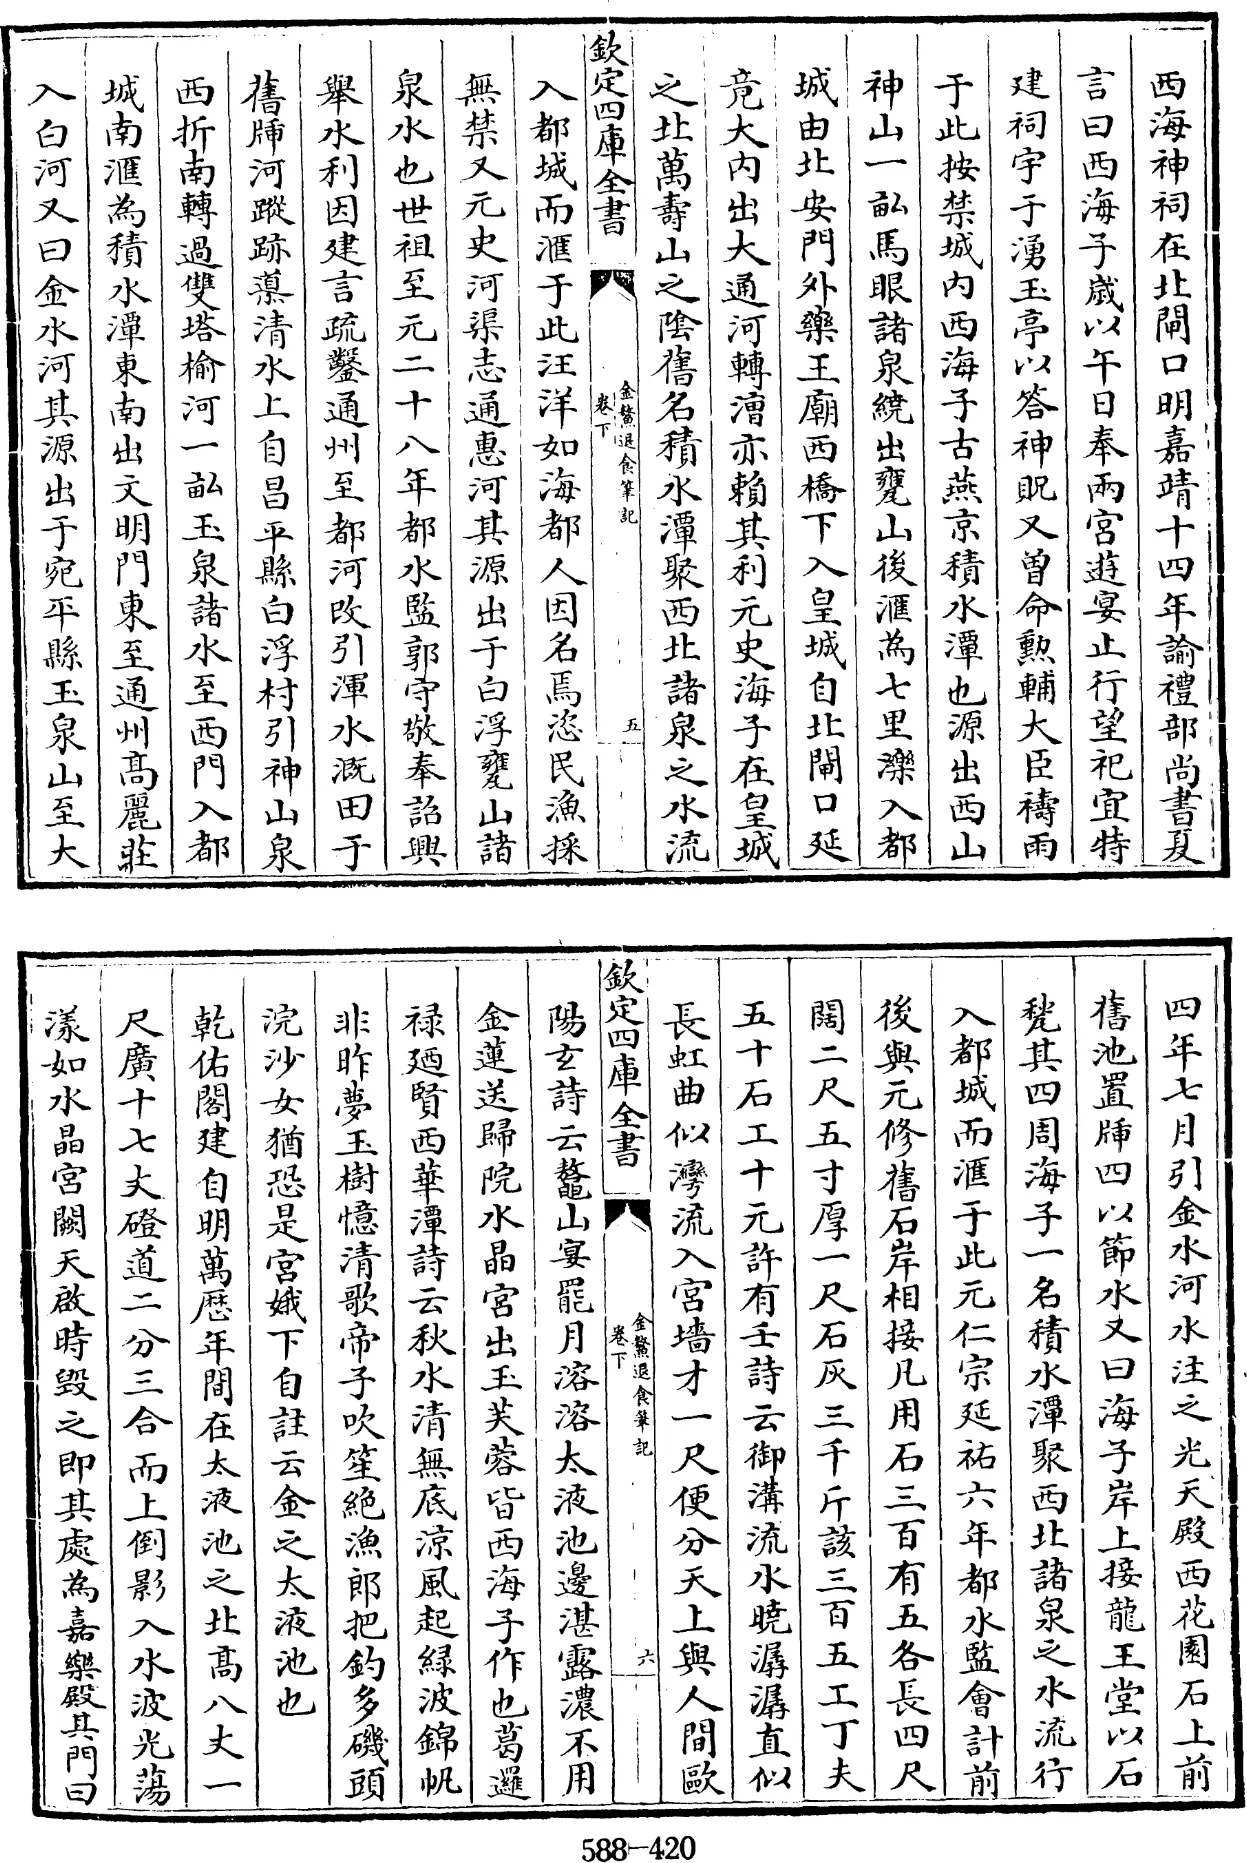 西海神祠在北閘口明嘉靖十四年諭禮部尚書夏
言曰西海子歳以午日奉兩宮遊宴止行望祀宜特
建祠宇于湧玉亭以答神貺又曽命勲輔大臣禱雨
于此按禁城内西海子古燕京積水潭也源出西山
神山一畝馬眼諸泉繞出甕山後滙為七里濼入都
城由北安門外藥王廟西橋下入皇城自北閘口延
竟大内出大通河轉漕亦賴其利元史海子在皇城
之北萬壽山之隂舊名積水潭聚西北諸泉之水流
欽定四庫全書
金鰲退食筆記
卷下
五
入都城而滙于此汪洋如海都人因名焉恣民漁採
無禁又元史河渠志通惠河其源出于白浮甕山諸
泉水也世祖至元二十八年都水監郭守敬奉詔興
舉水利因建言疏鑿通州至都河改引渾水溉田于
舊牐河蹤跡導清水上自昌平縣白浮村引神山泉
西折南轉過雙塔榆河一畝玉泉諸水至西門入都
城南滙為積水潭東南出文明門東至通州髙麗莊
入白河又曰金水河其源出于宛平縣玉泉山至大
四年七月引金水河水注之光天殿西花園石上前
舊池置牐四以節水又曰海子岸上接龍王堂以石
甃其四周海子一名積水潭聚西北諸泉之水流行
入都城而滙于此元仁宗延祐六年都水監會計前
後與元修舊石岸相接凡用石三百有五各長四尺
闊二尺五寸厚一尺石灰三千斤該三百五工丁夫
五十石工十元許有壬詩云御溝流水曉潺潺直似
長虹曲似灣流入宮墻才一尺便分天上與人間歐
欽定四庫全書
金鰲退食筆記
卷下
六
陽玄詩云鼇山宴罷月溶溶太液池邊湛露濃不用
金蓮送歸院水晶宮出玉芙蓉皆西海子作也葛邏
禄廼賢西華潭詩云秋水清無底涼風起緑波錦帆
非昨夢玉樹憶清歌帝子吹笙絶漁郎把釣多磯頭
浣沙女猶恐是宮娥下自註云金之太液池也
乾佑閣建自明萬歴年間在太液池之北髙八丈一
尺廣十七丈磴道二分三合而上倒影入水波光蕩
漾如水晶宮闕天啟時毁之即其處為嘉樂殿其門曰
588-420